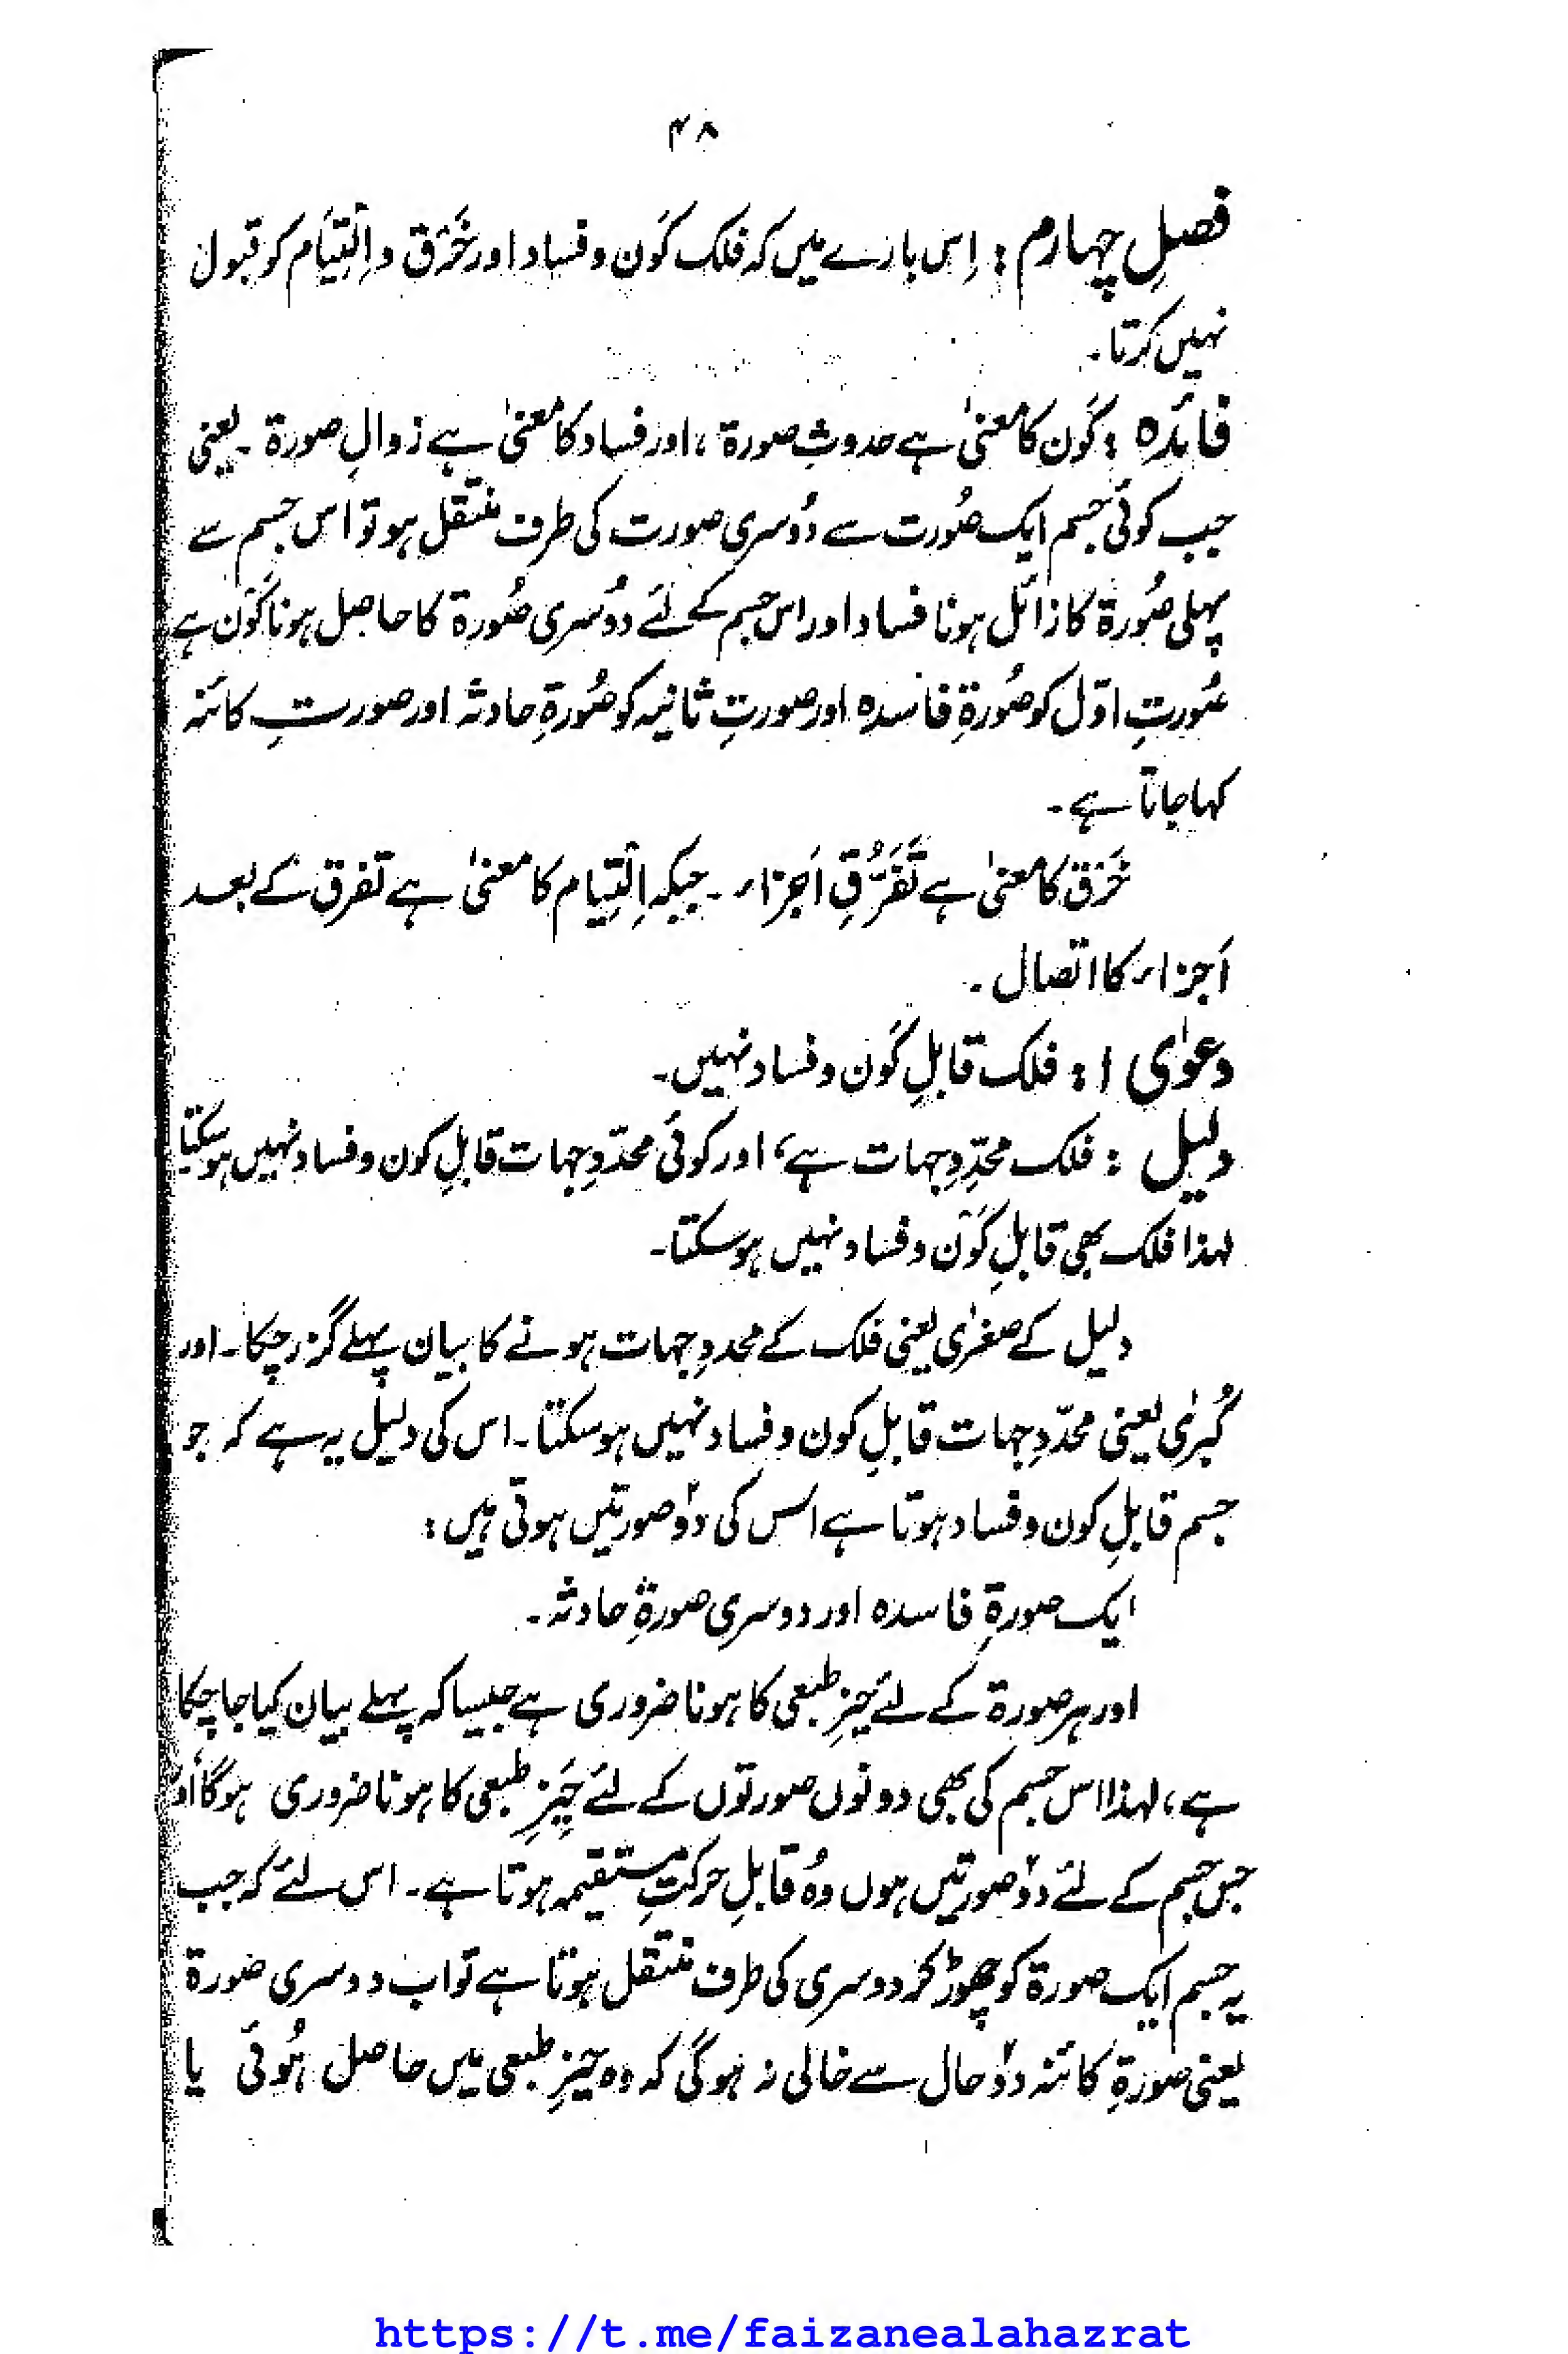 ۴۸
فصلِ چہارم : اِس بارے میں کہ فلک کَون و فساد اور خَرْق و اِلْتِیَام کو قبول
نہیں کرتا۔
فائدہ : کَون کا معنیٰ ہے حدوثِ صورۃ ، اور فساد کا معنیٰ ہے زوالِ صورۃ ۔ یعنی
جب کوئی جسم ایک صُورت سے دُوسری صورت کی طرف منتقل ہو تو اس جسم سے
پہلی صُورۃ کا زائل ہونا فساد اور اس جسم کے لئے دوُسری صُورۃ کا حاصل ہونا کَوْن ہے
صُورتِ اوّل کو صُورۃِ فاسدہ اور صورتِ ثانیہ کو صُورۃِ حادثہ اور صورتِ کائنہ
کہا جاتا ہے ۔
خَرْق کا معنیٰ ہے تَفَرُّقِ اَجزاء ۔ جبکہ اِلْتِیام کا معنیٰ ہے تفرق کے بعد
اَجزاء کا اتصال ۔
دعوٰی ۱ : فلک قابلِ کَون و فساد نہیں۔
دلیل : فلک محدِّدِ جہات ہے ، اور کوئی محدّدِ جہات قابلِ کون و فساد نہیں ہوسکتا
لہذا فلک بھی قابلِ کَوْن و فساد نہیں ہوسکتا۔
دلیل کے صغرٰی یعنی فلک کے محددِ جہات ہونے کا بیان پہلے گزر چکا۔ اور
کُبرٰی یعنی محدّدِ جہات قابلِ کون و فساد نہیں ہوسکتا۔ اس کی دلیل یہ ہے کہ جو
جسم قابلِ کون و فساد ہوتا ہے اس کی دوٗ صورتیں ہوتی ہیں :
ایک صورۃِ فاسدہ اور دوسری صورۃِ حادثہ ۔
اور ہر صورۃ کے لئے حَیِّزِ طبعی کا ہونا ضروری ہے جیسا کہ پہلے بیان کیا جا چکا
ہے ، لہذا اس جسم کی بھی دونوں صورتوں کے لئے حَیِّزِ طبعی کا ہونا ضروری ہوگا اور
جس جسم کے لئے دوٗ صورتیں ہوں وہُ قابلِ حرکتِ مستقیمہ ہوتا ہے ۔ اس لئے کہ جب
یہ جسم ایک صورۃ کو چھوڑ کر دوسری کی طرف منتقل ہوتا ہے تو اب دوسری صورۃ
یعنی صورۃِ کائنہ دوٗ حال سے خالی نہ ہوگی کہ وہ حیّزِ طبعی میں حاصل ہُوئی یا
https://t.me/faizanealahazrat